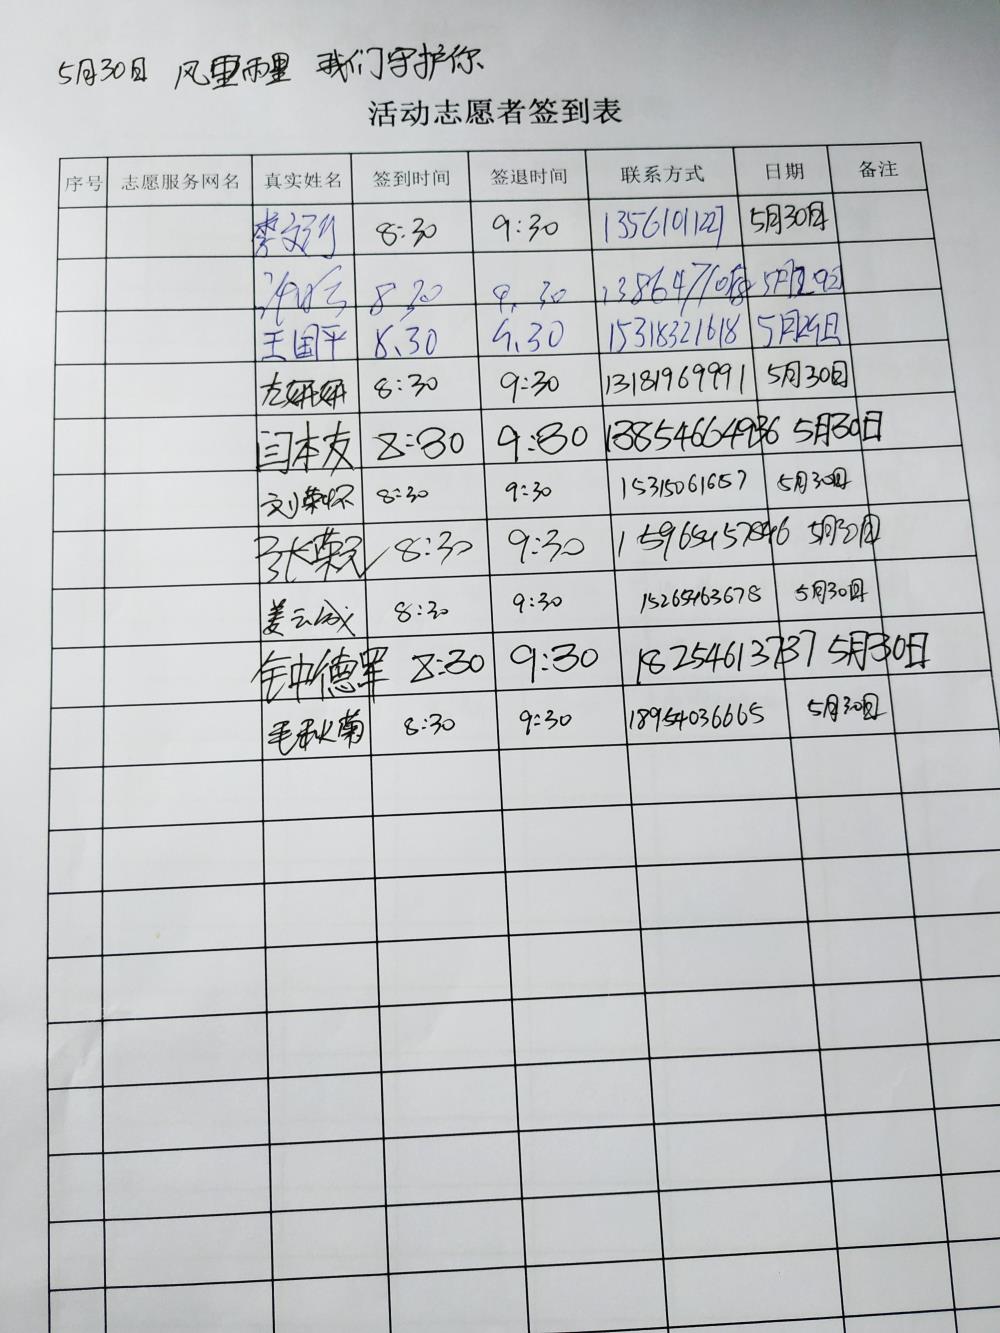 5月30日 风里雨里 我们守护你
活动志愿者签到表
序号 志愿服务网名 真实姓名 签到时间 签退时间 联系方式 日期 备注
李 8:30 9:30 13561011227 5月30日
8.30 9.30
王国平 8.30 9.30 15318321618 5月29日
左妍妍 8:30 9:30 13181969991 5月30日
闫本友 8:30 9:30 5月30日
刘荣 8:30 9:30 15315061657 5月30日
张荣 8:30 9:30 5月30日
姜云成 8:30 9:30 15265463678 5月30日
德军 8:30 9:30 18254613737 5月30日
毛秋菊 8:30 9:30 18954036665 5月30日